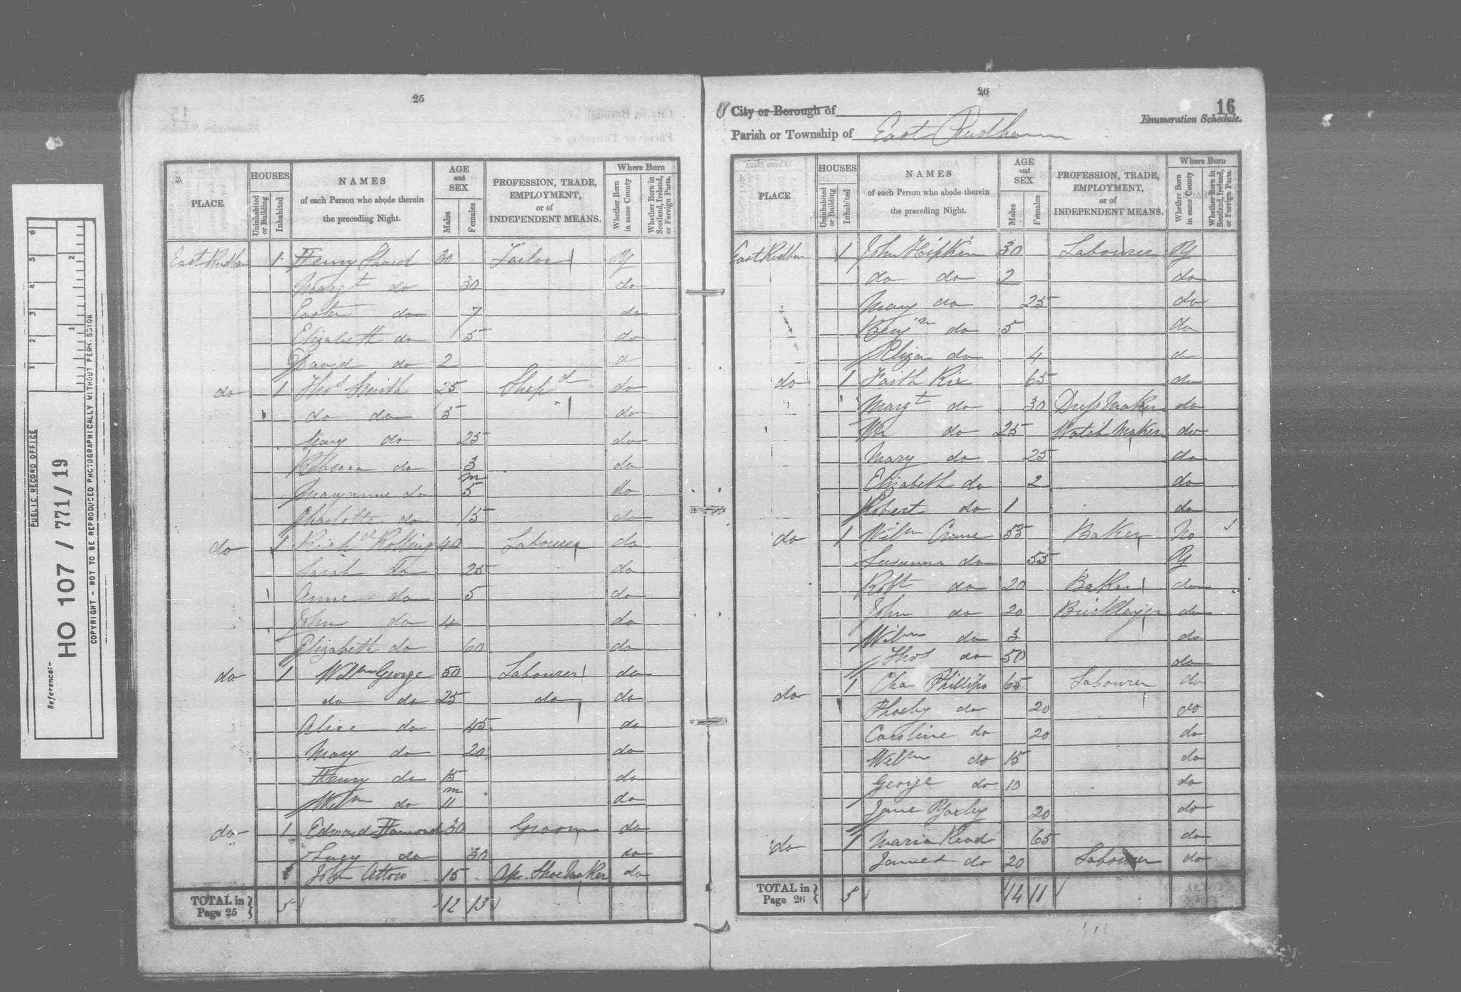 25
PLACE
HOUSES
Uninhabited or Building
Inhabited
NAMES
of each Person who abode therein
the preceding Night.
AGE
and
SEX
Males
Females
PROFESSION, TRADE,
EMPLOYMENT,
or of
INDEPENDENT MEANS.
Where Born
Whether Born in same County
Whether Born in Scotland, Ireland, or Foreign Parts.
1 Henry 30 Tailor Y
Margt do 30 do
do 7 do
Elizabeth do 5 do
David do 2
do 1 Thos Smith 25 do
do do 5 do
Mary do 25 do
Rebecca do 3 do
Maryanne do 5 m do
Charlotte do 15 do
do 1 40 Labourer do
Sarah do 25 do
Anne do 5 do
John do 4 do
Elizabeth do 60 do
do 1 Willm George 50 Labourer do
do do 25 do do
Alice do 45 do
Mary do 20 do
Henry do 15 do
Willm do 11 m do
do 1 Edmund 30 Groom do
Lucy do 30 do
John 15 Ap. Shoe Maker do
TOTAL in
Page 25
5 12 13
26
16
City or Borough of
Enumeration Schedule.
Parish or Township of East Rudham
PLACE
HOUSES
Uninhabited or Building
Inhabited
NAMES
of each Person who abode therein
the preceding Night.
AGE
and
SEX
Males
Females
PROFESSION, TRADE,
EMPLOYMENT,
or of
INDEPENDENT MEANS.
Where Born
Whether Born in same County
Whether Born in Scotland, Ireland, or Foreign Parts.
East Rudham 1 John Hipkin 30 Labourer Y
do do 2 do
Mary do 25 do
Benjn do 5 do
Eliza do 4 do
do 1 Faith Rix 65 do
Margt do 30 Dress Maker do
Wm do 25 Watch Maker do
Mary do 25 do
Elizabeth do 2 do
Robert do 1 do
do 1 Willm Crane 55 Baker No
Susanna do 55 Y
Robt do 20 Baker do
John do 20 Bricklayer do
Willm do 3 do
Thos do 50 do
do 1 Cha Phillips 65 Labourer do
Phoeby do 20 do
Caroline do 20 do
Willm do 15 do
George do 10 do
Jane 20 do
do 1 Maria Read 65 do
James do 20 Labourer do
TOTAL in
Page 26
5 14 11
PUBLIC RECORD OFFICE
Reference:-
HO 107 / 771/19
COPYRIGHT - NOT TO BE REPRODUCED PHOTOGRAPHICALLY WITHOUT PERMISSION